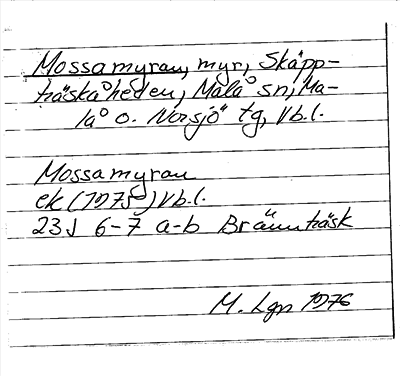 Mossamyran, myr, Skäpp-
träskåheden, Malå sn, Ma-
lå o. Norsjö tg, Vb.l.
Mossamyran
ek (1975) Vb.l.
23J 6-7 a-b Brännträsk
M. Lgn 1976